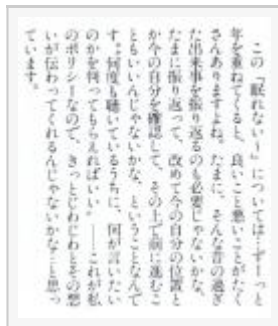 この『眠れない〜』については…ずーっと
年を重ねてくると、良いこと悪いことがたく
さんありますよね。たまに、そんな昔の過ぎ
た出来事を振り返るのも必要じゃないかな、
たまに振り返って、改めて今の自分の位置と
か今の自分を確認して、その上で前に進むこ
ともいいんじゃないかな、ということなんで
す。何度も聴いているうちに、何が言いたい
のかを判ってもらえればいい。——これが私
のポリシーなので、きっとじわじわとその想
いが伝わってくれるんじゃないかな？と思っ
ています。